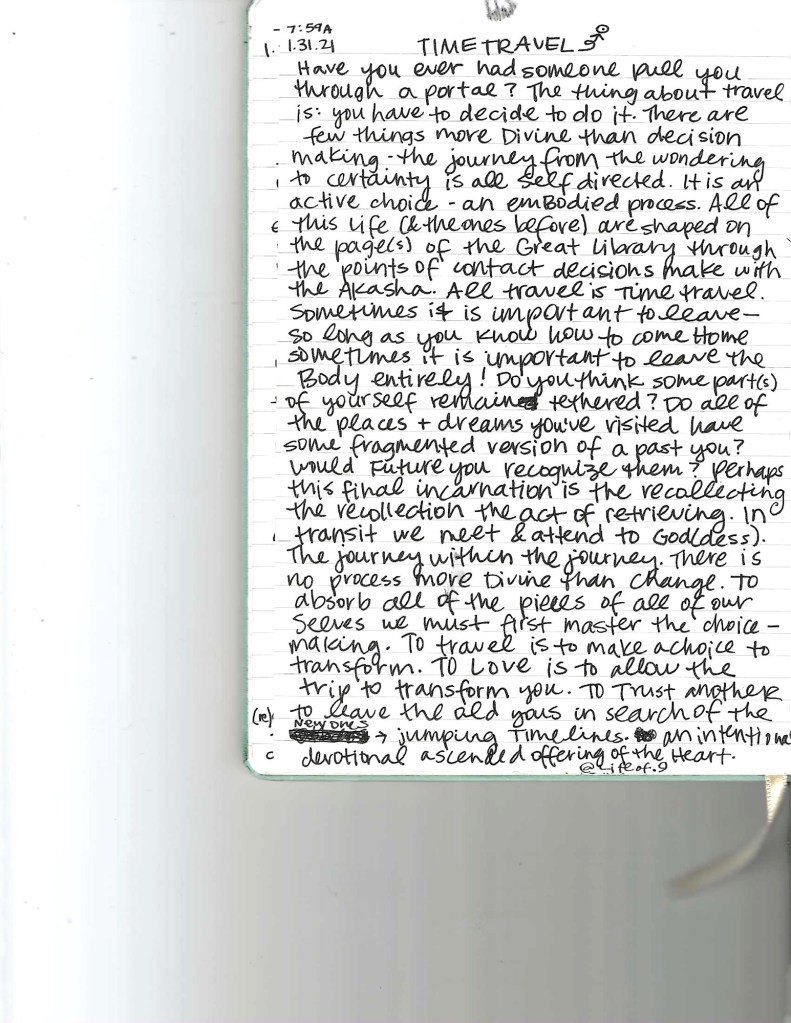 - 7:59A
1. 1.31.21 TIME TRAVEL
Have you ever had someone pull you
through a portal? The thing about travel
is: you have to decide to do it. There are
few things more Divine than decision
making - the journey from the wondering
to certainty is all self directed. It is an
active choice - an embodied process. All of
this Life (& the ones before) are shaped on
the page(s) of the Great Library through
the points of contact decisions make with
the Akasha. All travel is Time travel.
Sometimes it is important to leave -
so long as you know how to come Home
sometimes it is important to leave the
Body entirely! Do you think some part(s)
of yourself remain tethered? Do all of
the places + dreams you've visited have
some fragmented version of a past you?
Would Future you recognize them? Perhaps
this final incarnation is the recollecting
the recollection the act of retrieving. In
transit we meet & attend to God(dess).
The journey within the journey. There is
no process more Divine than Change. To
absorb all of the pieces of all of our
Selves we must first master the choice -
making. To travel is to make a choice to
transform. To Love is to allow the
trip to transform you. To Trust another
(re) to leave the old yous in search of the
New ones → jumping Timelines. an intentional
devotional ascended offering of the Heart.
@Life.of.9